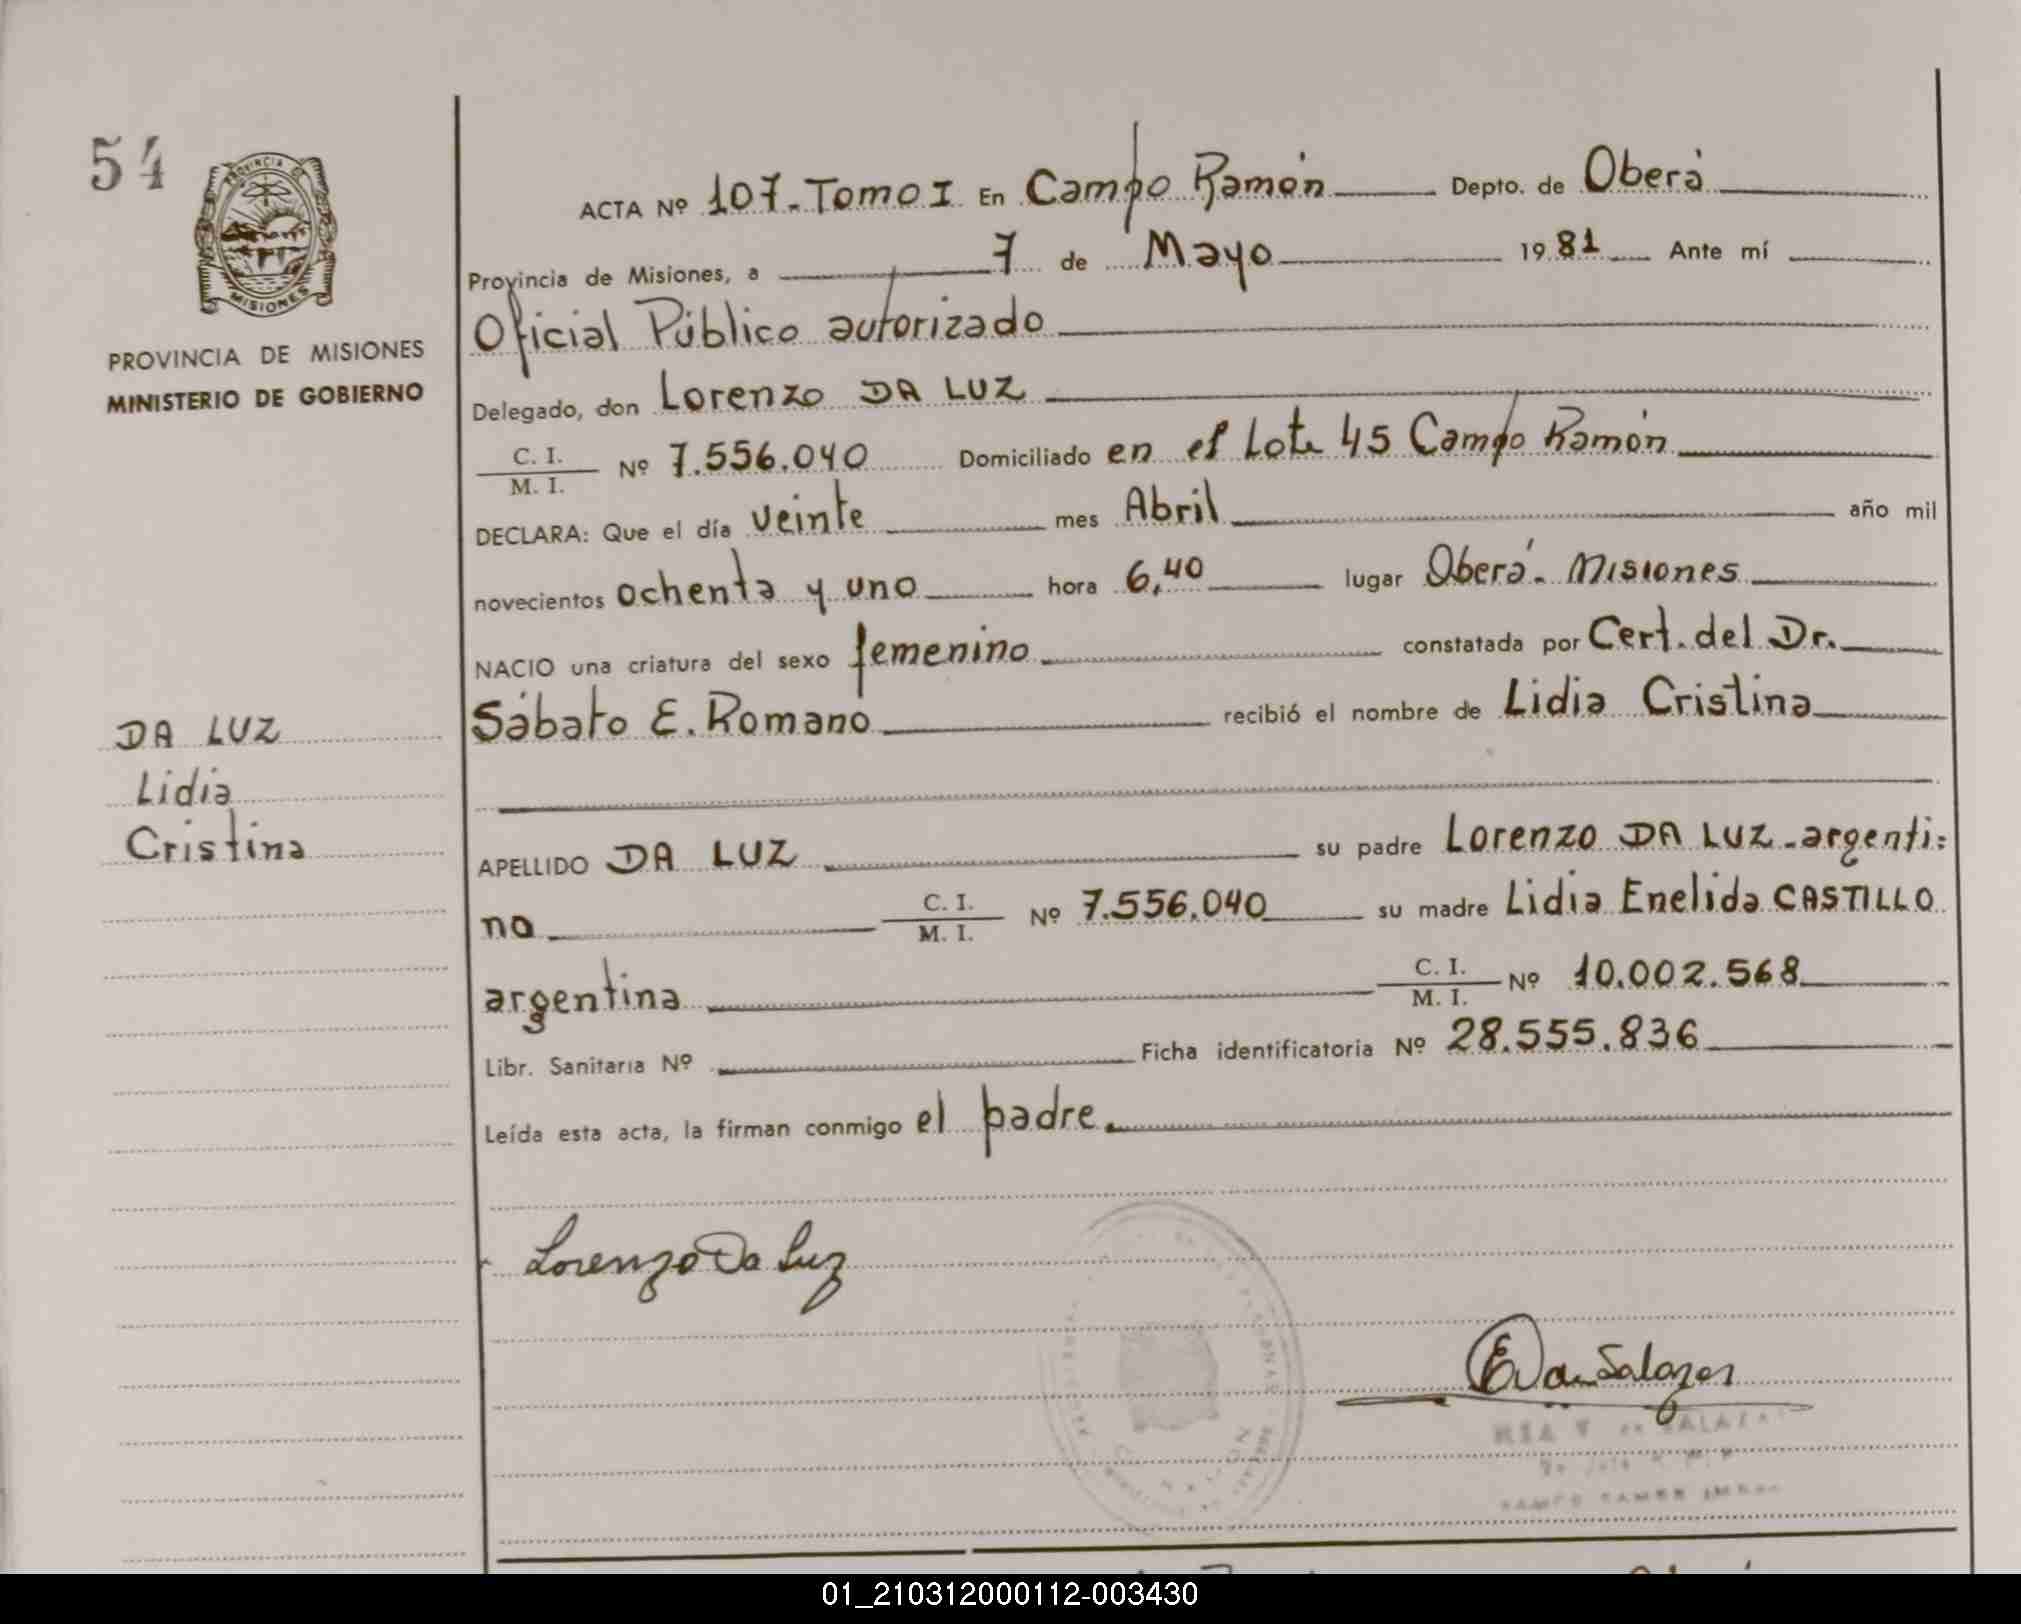 54
PROVINCIA DE
MISIONES
PROVINCIA DE MISIONES
MINISTERIO DE GOBIERNO
DA LUZ
Lidia
Cristina
ACTA Nº 107-Tomo I En Campo Ramón Depto. de Oberá
Provincia de Misiones, a 7 de Mayo 1981 Ante mí
Oficial Público autorizado
Delegado, don Lorenzo DA LUZ
C. I.
M. I. Nº 7.556.040 Domiciliado en el Lote 45 Campo Ramón
DECLARA: Que el día veinte mes Abril año mil
novecientos ochenta y uno hora 6,40 lugar Oberá - Misiones
NACIO una criatura del sexo femenino constatada por Cert. del Dr.
Sábato E. Romano recibió el nombre de Lidia Cristina
APELLIDO DA LUZ su padre Lorenzo DA LUZ - argenti=
no C. I. M. I. Nº 7.556.040 su madre Lidia Enelida CASTILLO
argentina C. I. M. I. Nº 10.002.568
Libr. Sanitaria Nº Ficha identificatoria Nº 28.555.836
Leída esta acta, la firman conmigo el padre.
Lorenzo Da Luz
Salazar
01_210312000112-003430